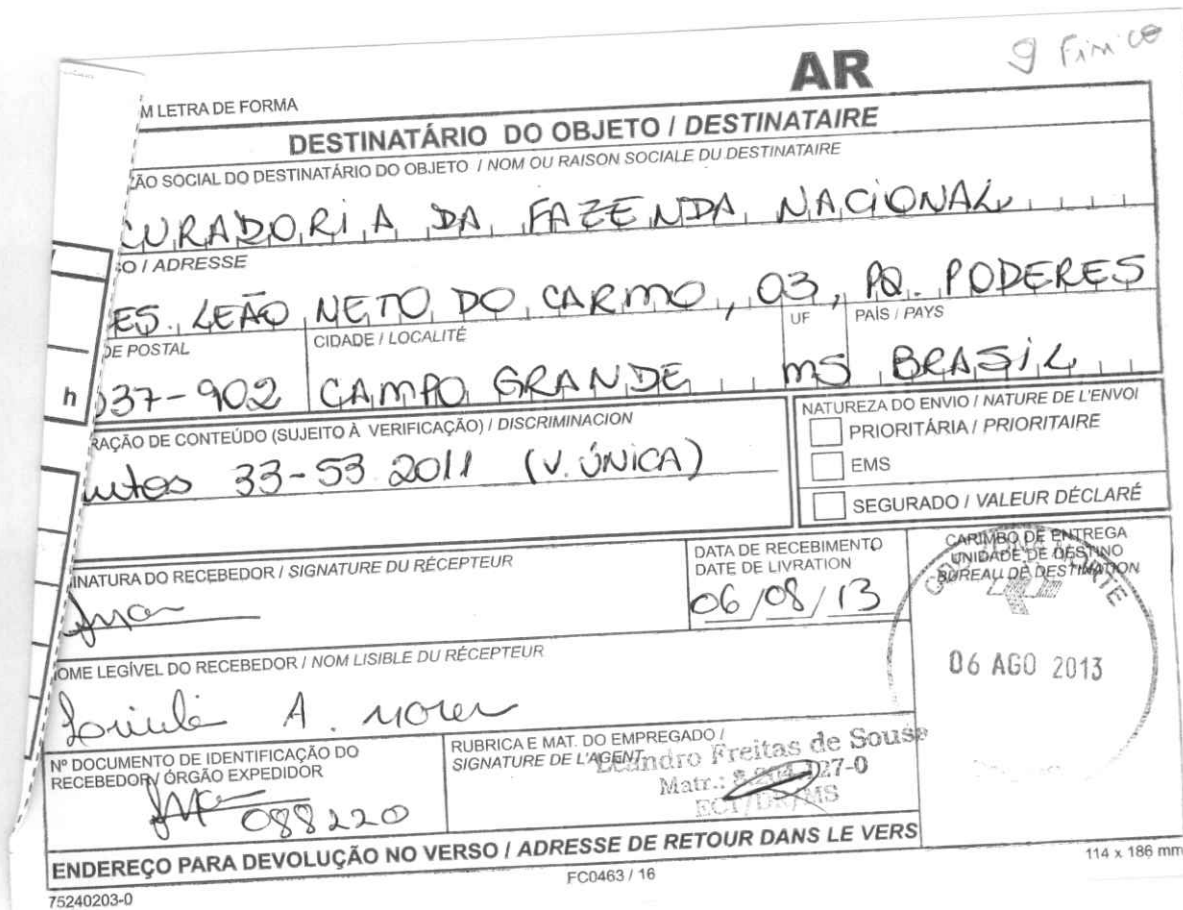 AR
g Fim ce
M LETRA DE FORMA
DESTINATÁRIO DO OBJETO / DESTINATAIRE
ÃO SOCIAL DO DESTINATÁRIO DO OBJETO / NOM OU RAISON SOCIALE DU DESTINATAIRE
CURADORIA DA FAZENDA NACIONAL
O / ADRESSE
ES. LEÃO NETO DO CARMO, 03, PQ. PODERES
DE POSTAL
CIDADE / LOCALITÉ
UF
PAÍS / PAYS
037-902 CAMPO GRANDE MS BRASIL
RAÇÃO DE CONTEÚDO (SUJEITO À VERIFICAÇÃO) / DISCRIMINACION
NATUREZA DO ENVIO / NATURE DE L'ENVOI
utos 33-53 2011 (V. ÚNICA)
PRIORITÁRIA / PRIORITAIRE
EMS
SEGURADO / VALEUR DÉCLARÉ
h
INATURA DO RECEBEDOR / SIGNATURE DU RÉCEPTEUR
DATA DE RECEBIMENTO
DATE DE LIVRATION
06/08/13
CARIMBO DE ENTREGA
UNIDADE DE DESTINO
BUREAU DE DESTINATION
06 AGO 2013
NOME LEGÍVEL DO RECEBEDOR / NOM LISIBLE DU RÉCEPTEUR
A.
Nº DOCUMENTO DE IDENTIFICAÇÃO DO
RECEBEDOR / ÓRGÃO EXPEDIDOR
088220
RUBRICA E MAT. DO EMPREGADO /
SIGNATURE DE L'AGENT
Leandro Freitas de Sousa
Matr.: 27-0
ECT/DR/MS
ENDEREÇO PARA DEVOLUÇÃO NO VERSO / ADRESSE DE RETOUR DANS LE VERS
75240203-0
FC0463 / 16
114 x 186 mm